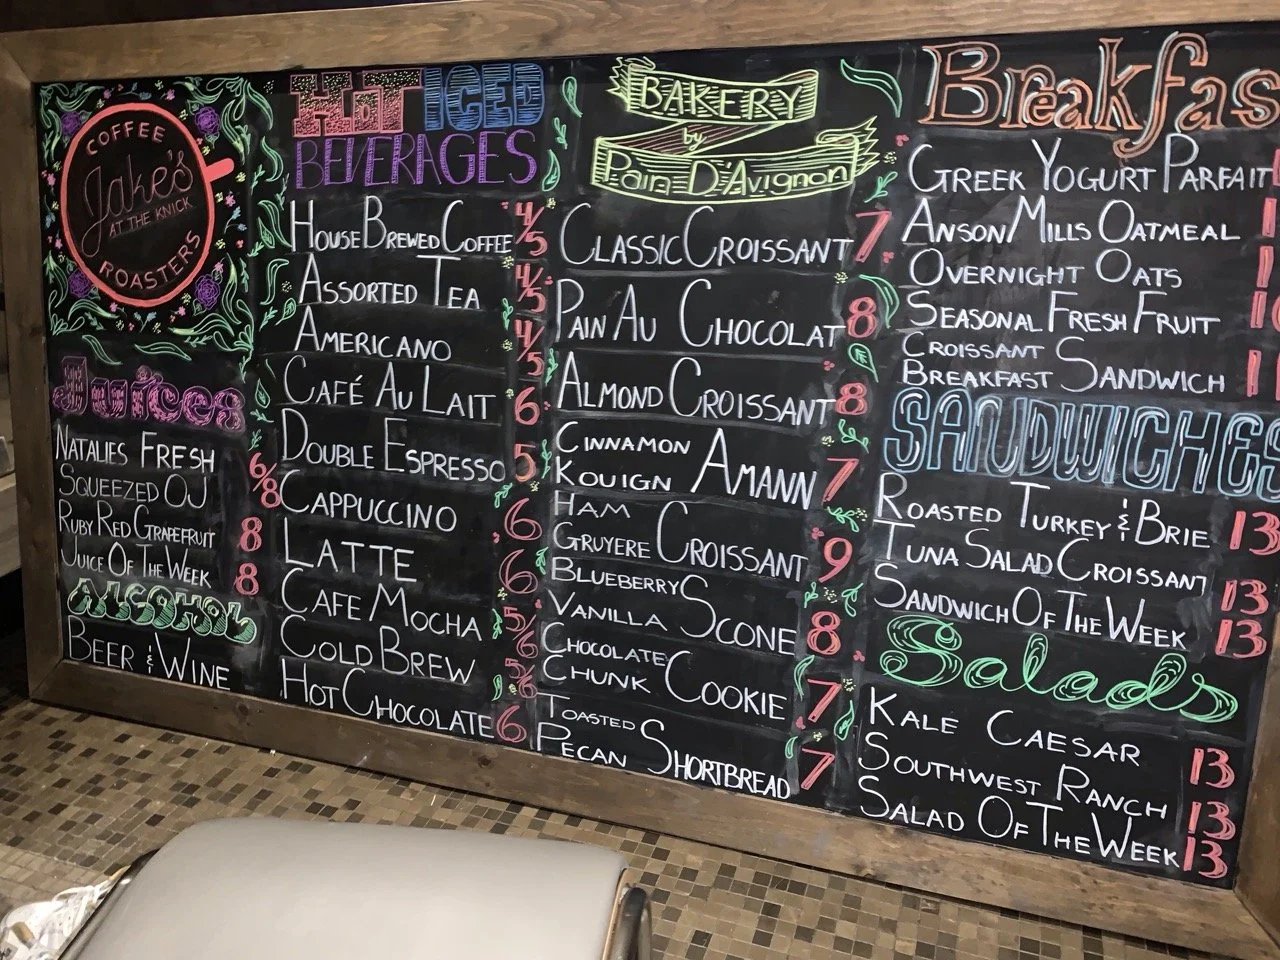 COFFEE
Jake's
AT THE KNICK
ROASTERS
Juices
NATALIES FRESH
SQUEEZED OJ 6/8
RUBY RED GRAPEFRUIT 8
JUICE OF THE WEEK 8
ALCOHOL
BEER & WINE
HOT ICED
BEVERAGES
HOUSE BREWED COFFEE 4/5
ASSORTED TEA 4/5
AMERICANO 4/5
CAFÉ AU LAIT 6
DOUBLE ESPRESSO 5
CAPPUCCINO 6
LATTE 6
CAFE MOCHA 5/6
COLD BREW 5/6
HOT CHOCOLATE 6
BAKERY
by
Pain D'Avignon
CLASSIC CROISSANT 7
PAIN AU CHOCOLAT 8
ALMOND CROISSANT 8
CINNAMON
KOUIGN AMANN 7
HAM
GRUYERE CROISSANT 9
BLUEBERRY
VANILLA SCONE 8
CHOCOLATE
CHUNK COOKIE 7
TOASTED
PECAN SHORTBREAD 7
Breakfas
GREEK YOGURT PARFAIT
ANSON MILLS OATMEAL
OVERNIGHT OATS
SEASONAL FRESH FRUIT
CROISSANT
BREAKFAST SANDWICH
SANDWICHES
ROASTED TURKEY & BRIE 13
TUNA SALAD CROISSANT 13
SANDWICH OF THE WEEK 13
Salads
KALE CAESAR 13
SOUTHWEST RANCH 13
SALAD OF THE WEEK 13